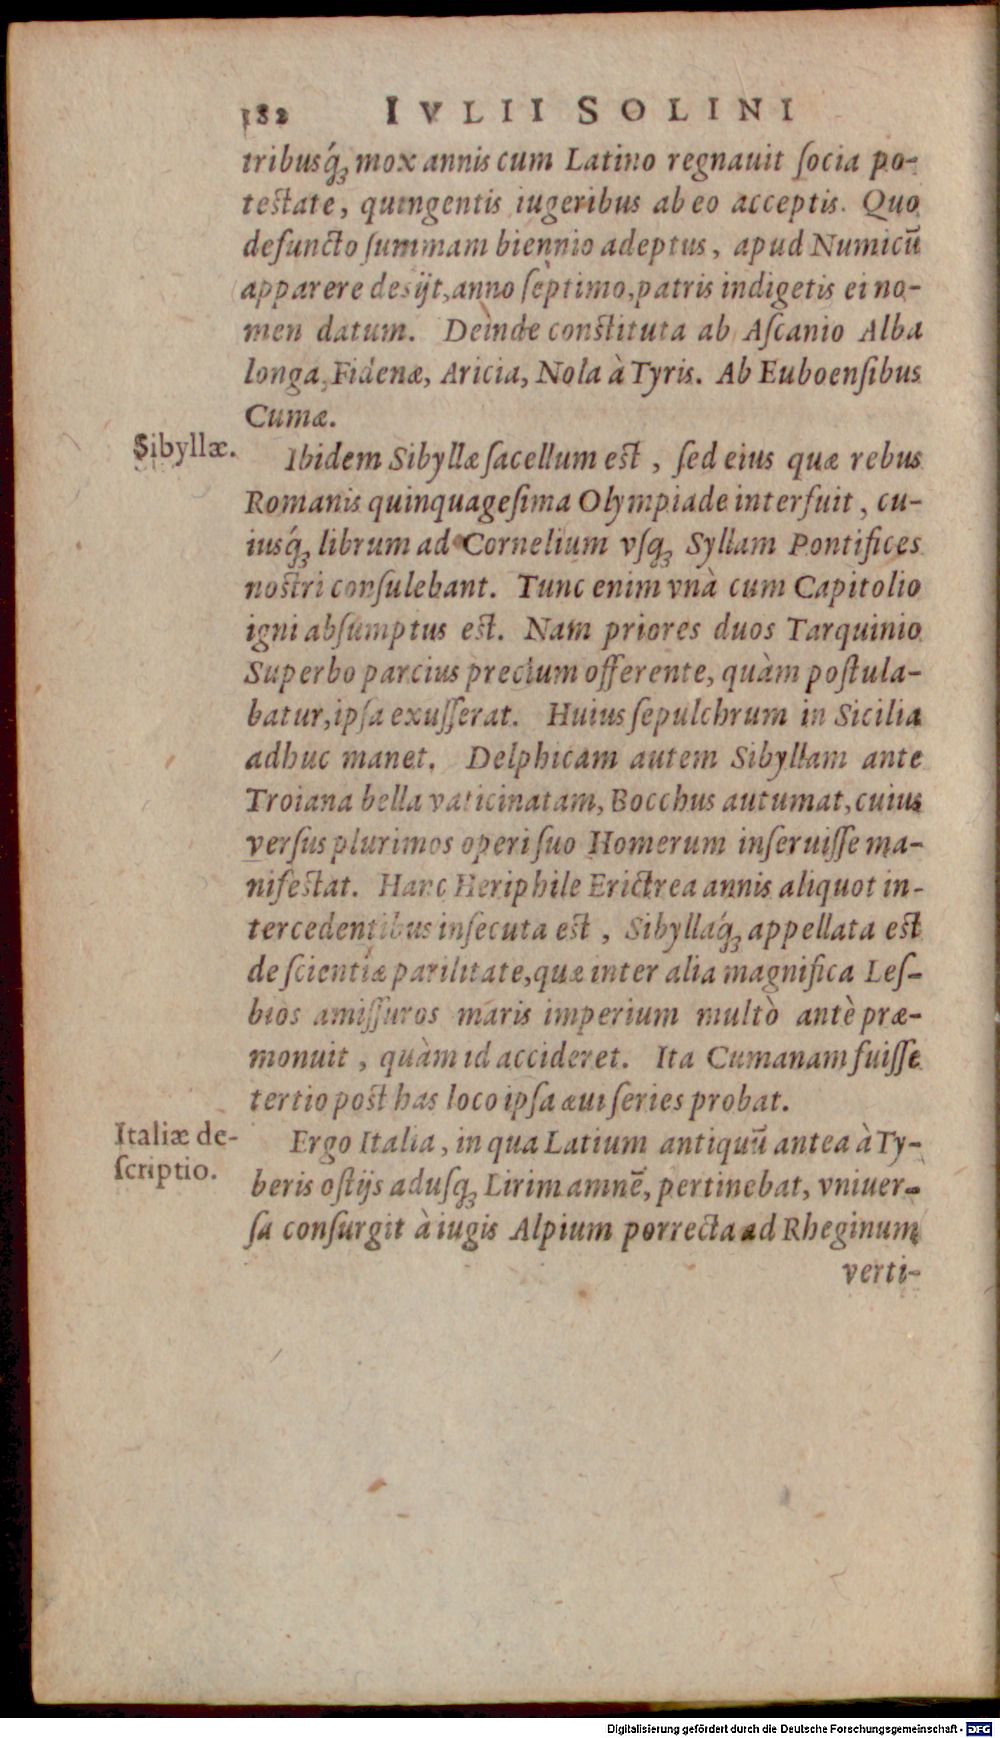 182 IVLII SOLINI
tribusq́ꝫ mox annis cum Latino regnauit ſocia po-
teſtate, quingentis iugeribus ab eo acceptis. Quo
defuncto ſummam biennio adeptus, apud Numicū
apparere desijt, anno ſeptimo, patris indigetis ei no-
men datum. Deinde conſtituta ab Aſcanio Alba
longa, Fidenæ, Aricia, Nola à Tyris. Ab Euboenſibus
Cumæ.
Sibyllæ.
Ibidem Sibyllæ ſacellum eſt, ſed eius quæ rebus
Romanis quinquageſima Olympiade interfuit, cu-
iusq́ꝫ librum ad Cornelium vſqꝫ Syllam Pontifices
noſtri conſulebant. Tunc enim vnà cum Capitolio
igni abſumptus eſt. Nam priores duos Tarquinio
Superbo parcius precium offerente, quàm poſtula-
batur, ipſa exuſſerat. Huius ſepulchrum in Sicilia
adhuc manet. Delphicam autem Sibyllam ante
Troiana bella vaticinatam, Bocchus autumat, cuius
verſus plurimos operi ſuo Homerum inſeruiſſe ma-
nifeſtat. Hanc Heriphile Erictrea annis aliquot in-
tercedentibus inſecuta eſt, Sibyllaq́ꝫ appellata eſt
de ſcientiæ parilitate, quæ inter alia magnifica Leſ-
bios amiſſuros maris imperium multò antè præ-
monuit, quàm id accideret. Ita Cumanam fuiſſe
tertio poſt has loco ipſa æui ſeries probat.
Italiæ de-
ſcriptio.
Ergo Italia, in qua Latium antiquū antea à Ty-
beris oſtijs aduſqꝫ Lirim amnē, pertinebat, vniuer-
ſa conſurgit à iugis Alpium porrecta ad Rheginum
verti-
Digitalisierung gefördert durch die Deutsche Forschungsgemeinschaft - DFG